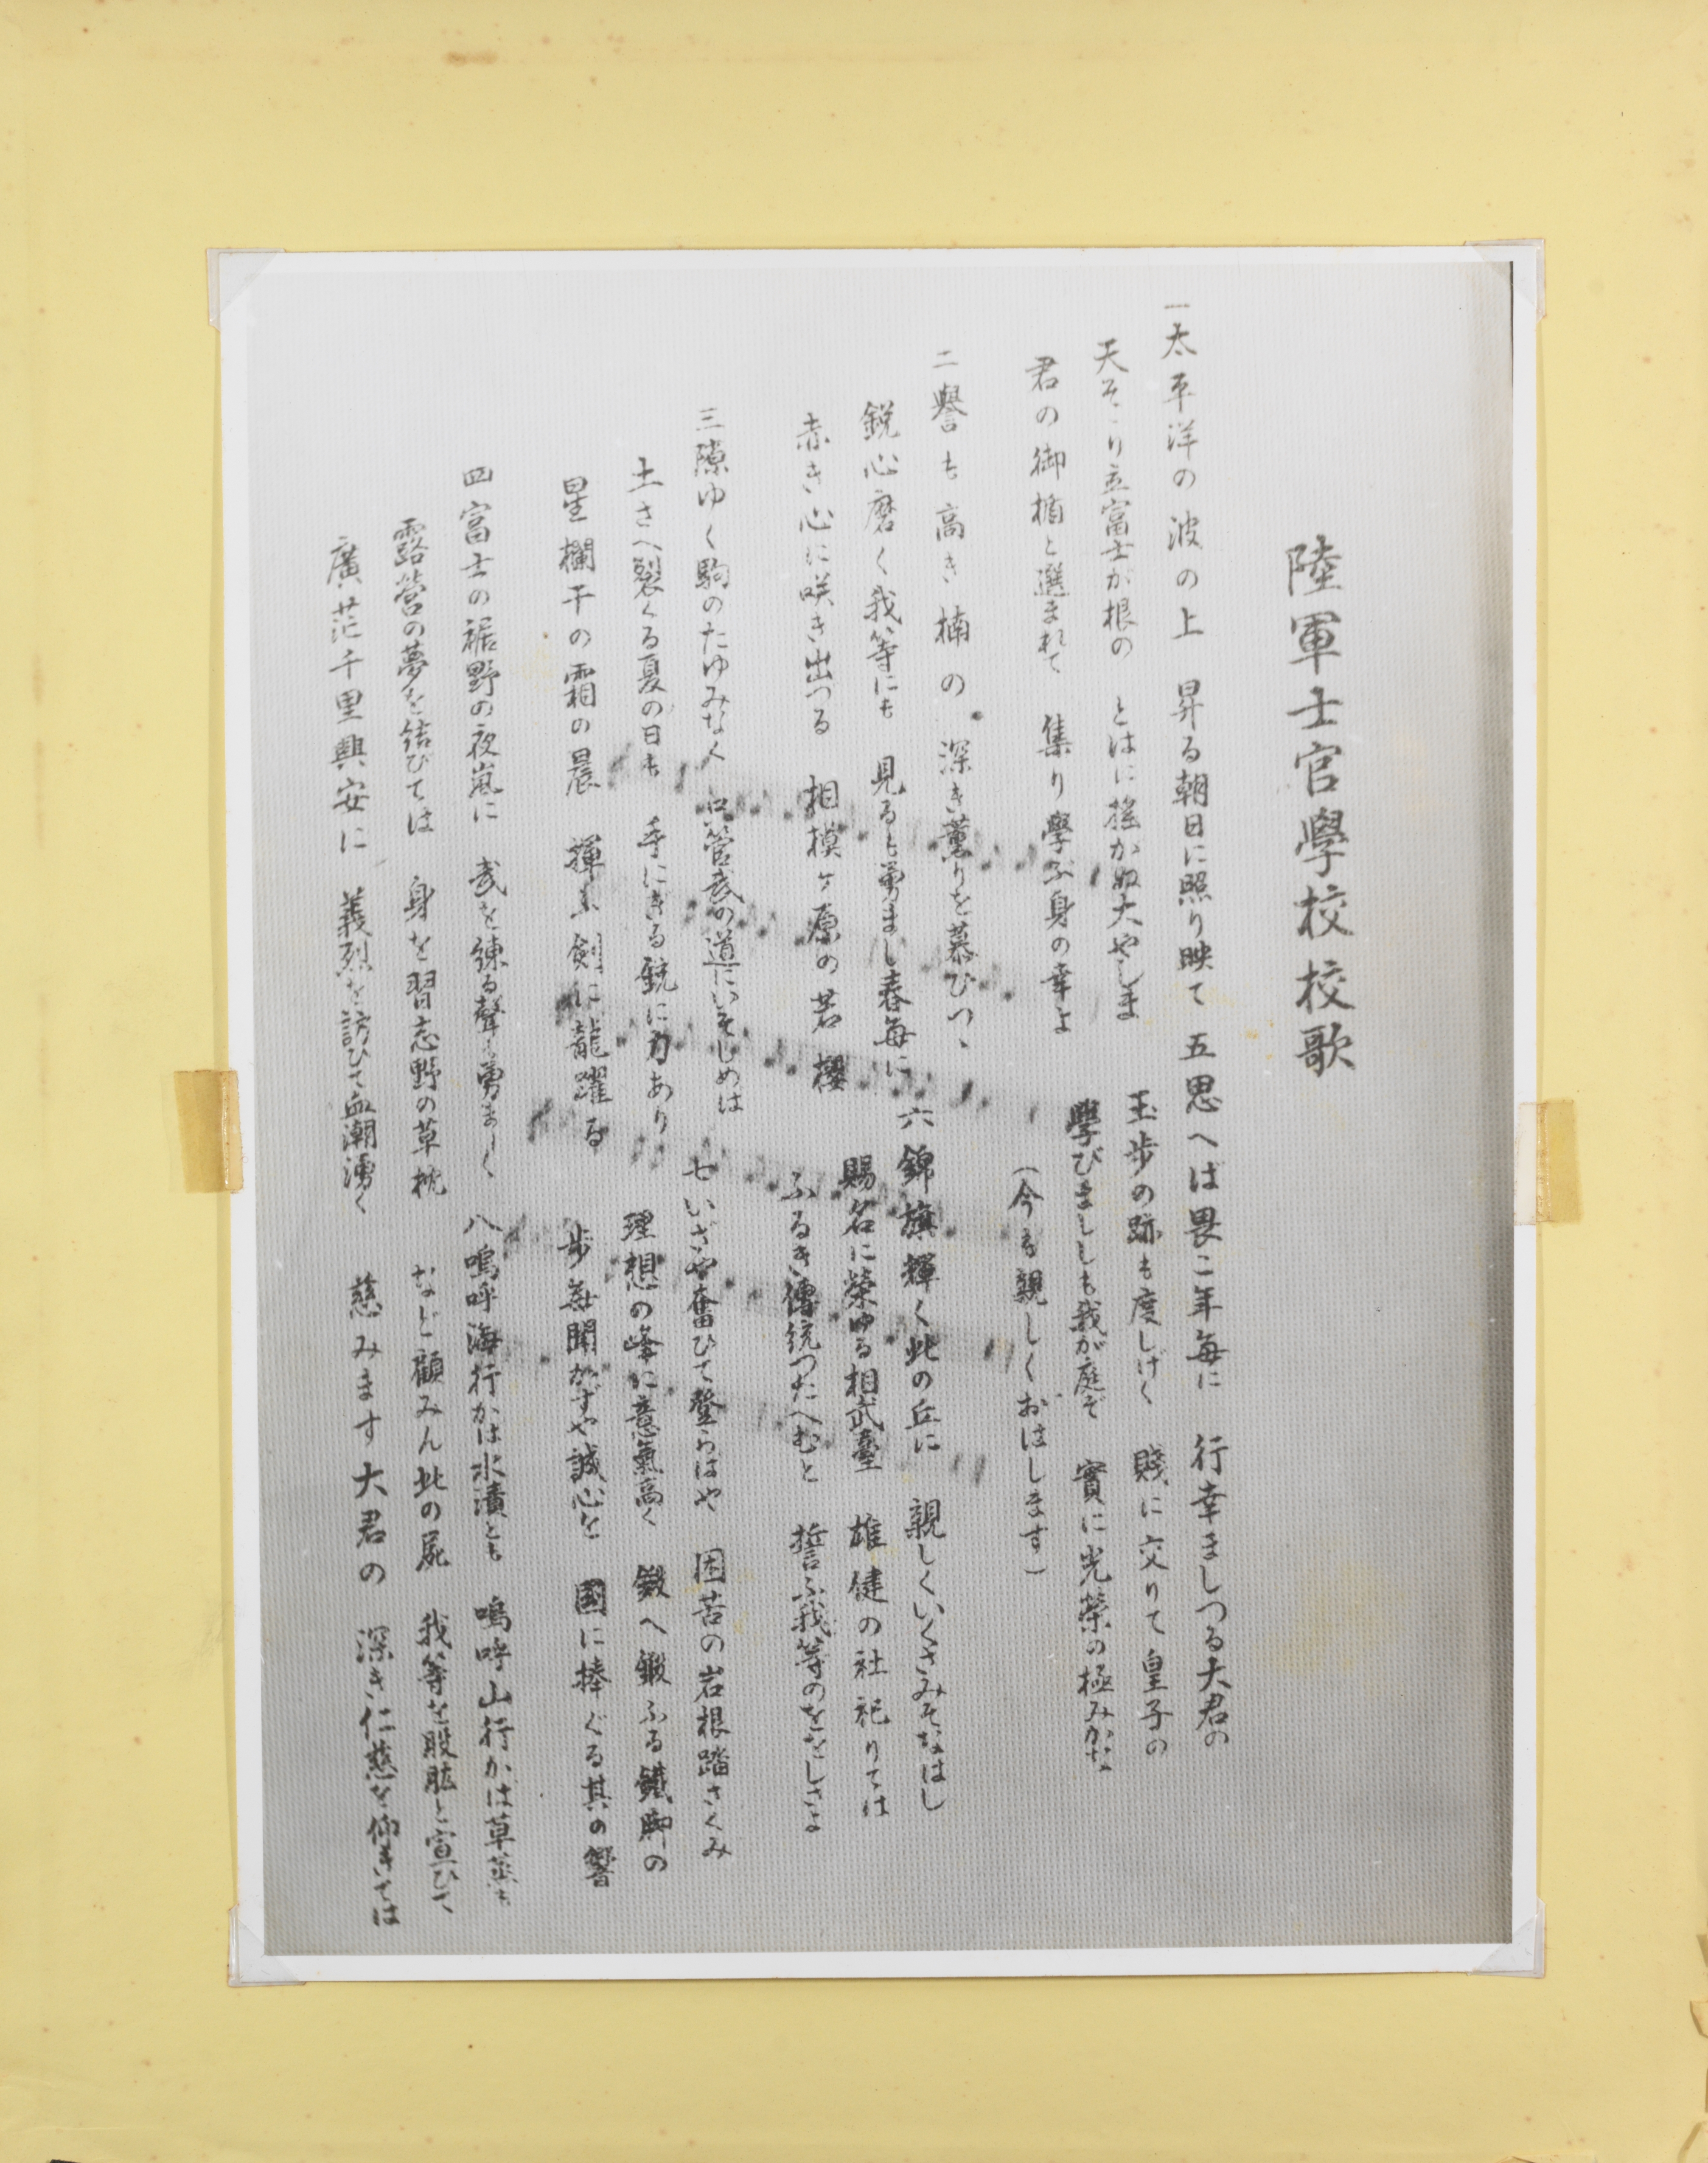 陸軍士官學校校歌
一太平洋の波の上 昇る朝日に照り映て
天そゝり立富士が根の とはに揺かぬ大やしま
君の御楯と選まれて 集り學ぶ身の幸よ
二譽も高き楠の 深き薫りを慕ひつゝ
鋭心磨く我等にも 見るも勇まし春毎に
赤き心に咲き出づる 相模ヶ原の若櫻
三隙ゆく駒のたゆみなく 只管武の道にいそしめは
土さへ裂くる夏の日も 手にきる銃に力あり
星欄干の霜の晨 揮ふ剣に龍躍る
四富士の裾野の夜嵐に 武を錬る聲も勇ましく
露營の夢を結びては 身を習志野の草枕
廣茫千里興安に 義烈を訪ひて血潮湧く
五思へば畏こ年毎に 行幸ましつる大君の
玉歩の跡も度しげく 賤に交りて皇子の
學びましゝも我が庭ぞ 實に光榮の極みかな
(今も親しくおはします)
六錦旗輝く此の丘に 親しくいくさみそなはし
賜名に榮ゆる相武臺 雄健の社祀りては
ふるき傳統つたへむと 誓ふ我等のををしさよ
七いざや奮ひて登らはや 困苦の岩根踏さくみ
理想の峰に意氣高く 鍛へ鍛ふる鐵脚の
歩毎聞かずや誠心を 國に捧ぐる其の響
八嗚呼海行かは水漬とも 嗚呼山行かば草蒸も
など顧みん此の屍 我等を股肱と宣ひて
慈みます大君の 深き仁慈を仰きては